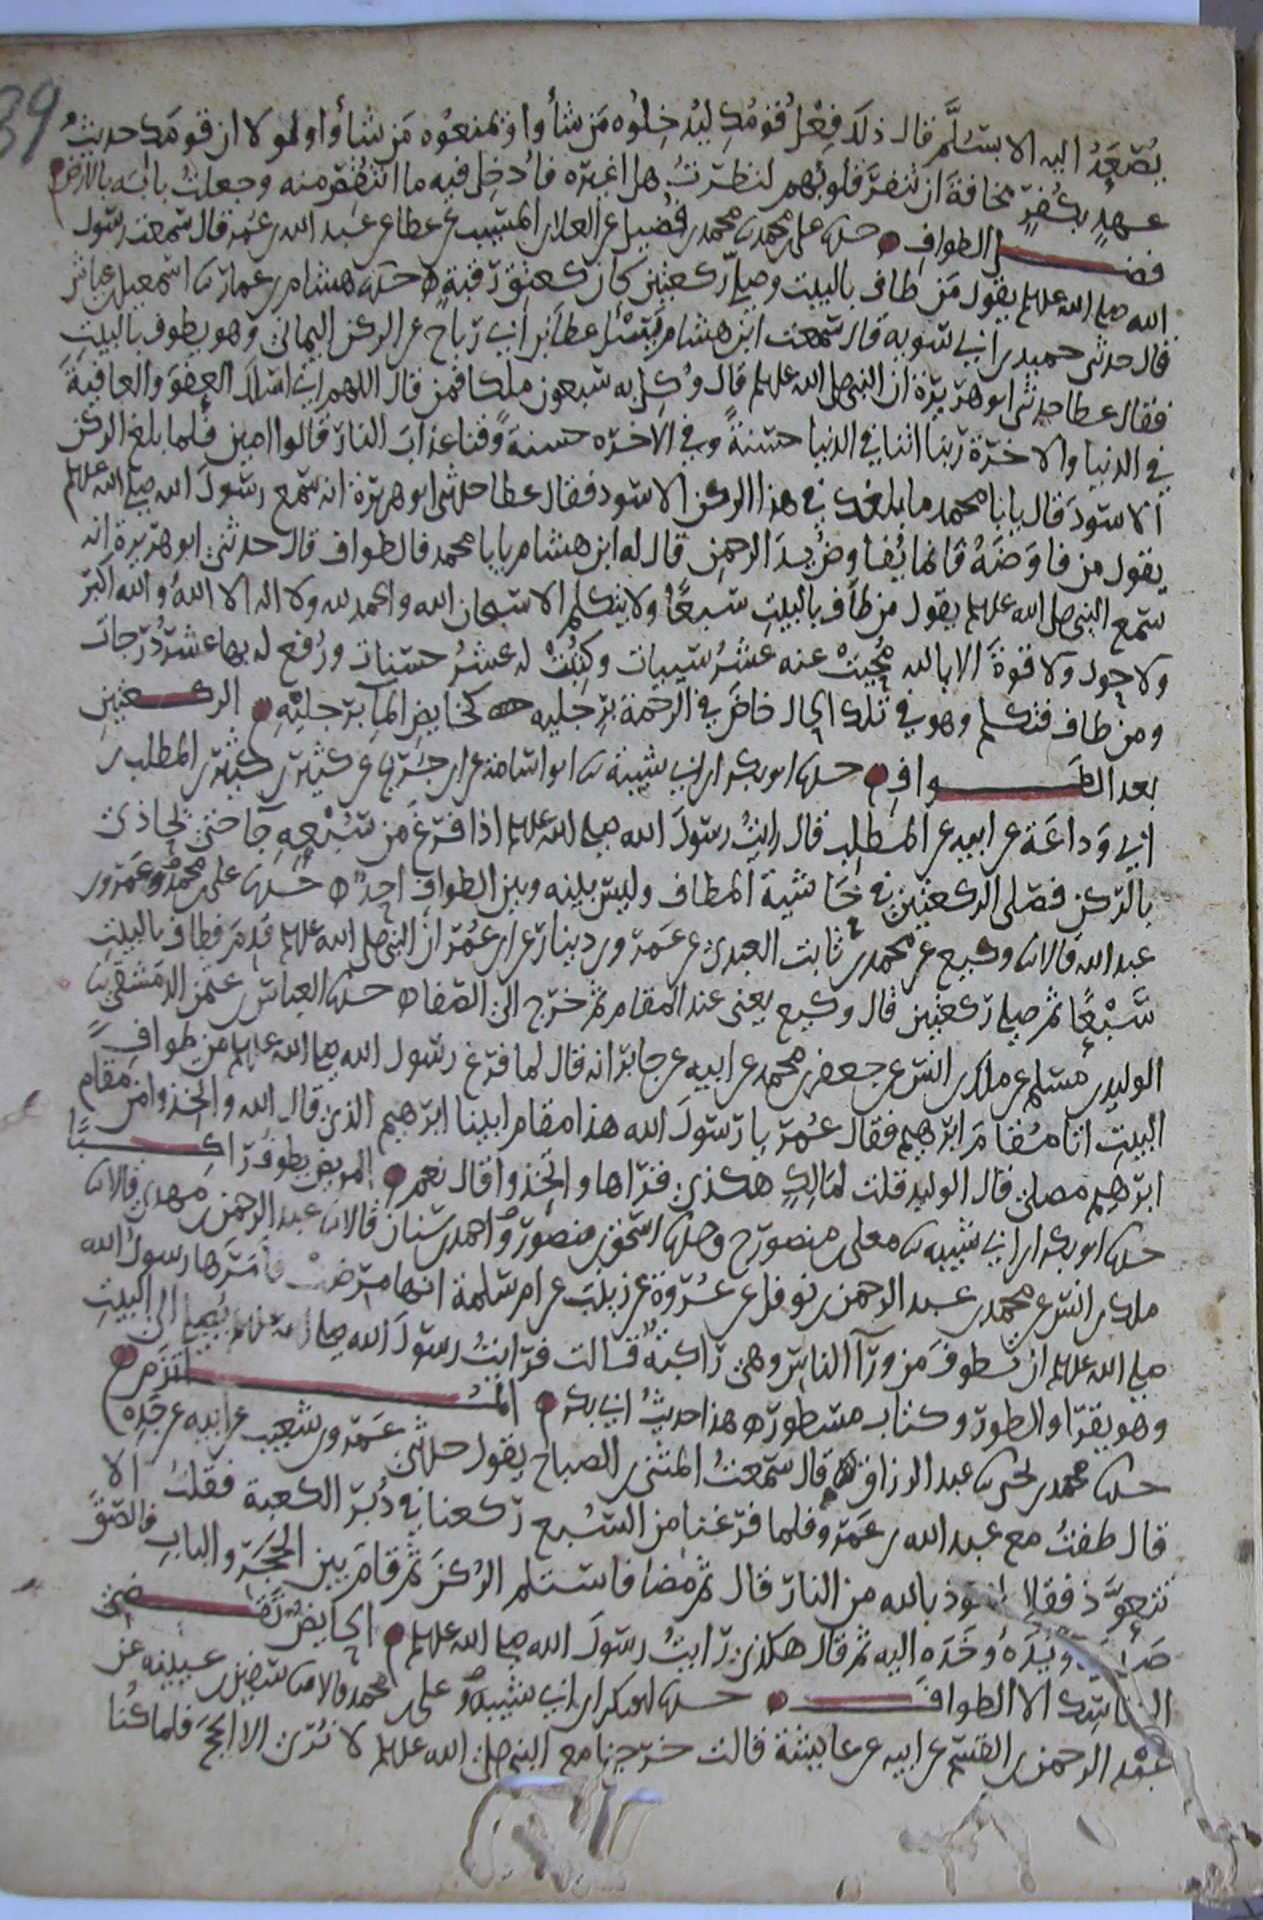 39
يُصْعَدُ اليه الا بسُلَّم قال ذلك فِعْلُ قَوْمُكِ ليُدْخِلُوه مَن شاؤا ويمنعوُه مَن شاؤا ولولا ان قومَكِ حديثُ
عهدٍ بكُفرٍ مخافةَ ان تنفرَ قلوبُهم لنظرتُ هل اغيره فأُدخِل فيه ما انتُقِصَ منه وجعلتُ بابَه بالارض
فضل الطواف حدثنا علي بن محمد ثنا محمد بن فضيل عن العلاء بن المسيب عن عطا عن عبد الله بن عمر قال سمعت رسول
الله صلى الله عليه وسلم يقول مَن طاف بالبيت وصلى ركعتين كان كعتق رقبة حدثنا هشام بن عمار ثنا اسمعيل بن عياش
قال حدثني حميد بن ابي سويه قال سمعت ابن هشام يَسْئل عطا بن ابي رباح عن الركن اليماني وهو يطوف بالبيت
فقال عطا حدثني ابو هريرة ان النبي صلى الله عليه وسلم قال وُكِل به سبعون ملكا فمن قال اللهم اني اسلك العفوَ والعافيةَ
في الدنيا والاخرة ربنا اتنا في الدنيا حسنةً وفي الاخره حسنةً وقنا عذابَ النار قالوا امين فلما بلغ الركن
الاسودَ قال يابا محمد ما بلغك في هذا الركن الاسود فقال عطا حدثني ابو هريرة انه سمع رسولَ الله صلى الله عليه وسلم
يقول من فاوَضَهُ فانما يُفاوِضُ يدَ الرحمن قال له ابن هشام يابا محمد فالطواف قال حدثني ابو هريرة انه
سمع النبي صلى الله عليه وسلم يقول من طاف بالبيت سبعًا ولا يتكلم الا سبحان الله والحمد لله ولا اله الا اللهُ والله اكبر
ولا حول ولا قوةَ الا بالله مُحِيَتْ عنه عشرُ سيئات وكُتِبَتْ له عشرُ حسنات ورُفع له بها عشرُ درجات
ومن طاف فتكلم وهو في تلك الحال خاضَ في الرحمة برِجليه كخايض الما برجليْهِ الركعتينِ
بعد الطواف حدثنا ابو بكر بن ابي شيبة ثنا ابو اسامة عن ابن جريج عن كثير بن كثير بن المطلب بن
ابي وَداعَة عن ابيه عن المطلب قال رايتُ رسولَ الله صلى الله عليه وسلم اذا فرغ من سُبْعِهِ جا حتى يحاذي
بالركن فصلى الركعتين في حَاشية المطاف وليس بينه وبين الطوافِ احدٌ حدثنا علي بن محمد وعمرو بن
عبد الله قالا ثنا وكيع عن محمد بن ثابت العبدي عن عمرو بن دينار عن ابن عمر ان النبي صلى الله عليه وسلم قدِم فطاف بالبيت
سَبْعًا ثم صلى ركعتين قال وكيع يعني عند المقام ثم خرج الى الصفا حدثنا العباس بن عثمن الدمشقي ثنا
الوليد بن مسلم عن ملك بن انس عن جعفر بن محمد عن ابيه عن جابر انه قال لما فرغ رسول الله صلى الله عليه وسلم من طواف
البيت اتا مُقامَ ابرهيم فقال عُمر يا رسولَ الله هذا مقام ابينا ابرهيم الذي قال الله واتخذوا من مقام
ابرهيم مصلى قال الوليد قلت لمالِكٍ هكذى قراها واتخِذوا قال نعم المريض يطوفُ راكبًا
حدثنا ابو بكر بن ابي شيبه ثنا معلى بن منصور ح وحدثنا اسحق بن منصور واحمد بن سنان قالا ثنا عبد الرحمن بن مهدي قالا ثنا
ملك بن انس عن محمد بن عبد الرحمن بن نوفل عن عُرْوة عن زينب عن ام سلمة انها مرضت فامَرَها رسولُ الله
صلى الله عليه وسلم ان تطوفَ من ورآ الناس وهي راكبةٌ قالت فرايتُ رسولَ الله صلى الله عليه وسلم يُصلي الى البيتِ
وهو يقرا والطور وكتاب مسطور هذا حديثُ ابي بكر الملتزم
حدثنا محمد بن يحيى ثنا عبد الرزاق قال سمعتُ المثنى بن الصباح يقول حدثني عمرو بن شعيب عن ابيه عن جَدِه
قال طفتُ مع عبد الله بن عمرو فلما فرغنا من السُبع ركعنا في دُبُر الكعبة فقلتُ الا
تتعوَّذ فقال اعوذ بالله من النار قال ثم مضا فاستلم الركنَ ثم قام بين الحَجَرِ والبابِ فالصق
صدره ويَدَهُ وخَدَه اليه ثم قال هكذى رايتُ رسولَ الله صلى الله عليه وسلم الحايضُ تقضي
المناسك الا الطواف حدثنا ابو بكر بن ابي شيبه وعلي بن محمد قالا ثنا سفين بن عيينه عن
عبْد الرحمن بن القسم عن ابيه عن عايشة قالت خرجنا مع النبي صلى الله عليه وسلم لا نُرى الا الحج فلما كُنا